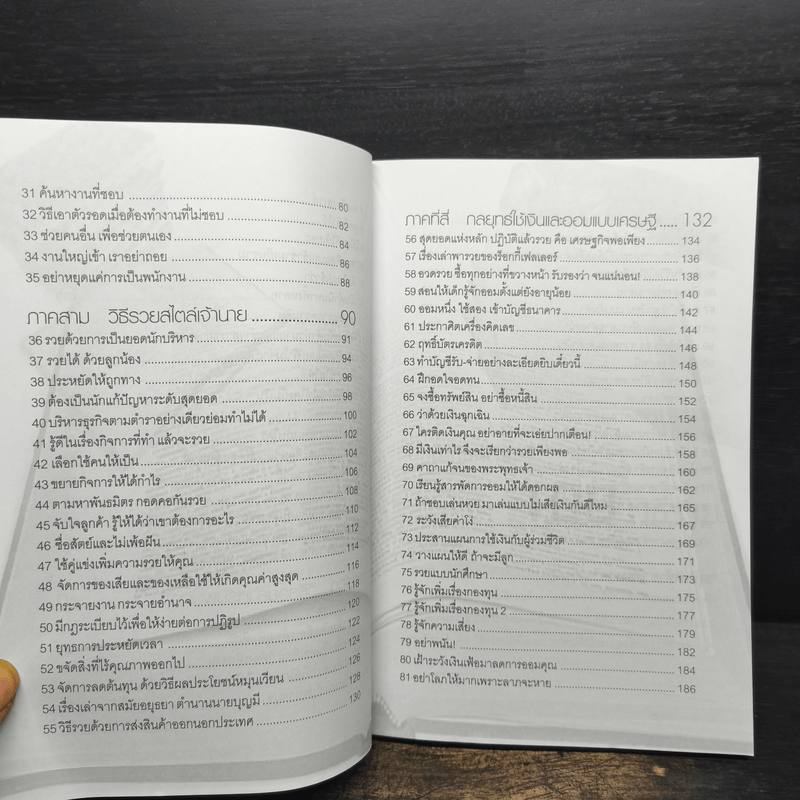 31 ค้นหางานที่ชอบ ........ 80
32 วิธีเอาตัวรอดเมื่อต้องทำงานที่ไม่ชอบ ........ 82
33 ช่วยคนอื่น เพื่อช่วยตนเอง ........ 84
34 งานใหญ่เข้า เราอย่าถอย ........ 86
35 อย่าหยุดแค่การเป็นพนักงาน ........ 88
ภาคสาม วิธีรวยสไตล์เจ้านาย ........ 90
36 รวยด้วยการเป็นยอดนักบริหาร ........ 91
37 รวยได้ ด้วยลูกน้อง ........ 94
38 ประหยัดให้ถูกทาง ........ 96
39 ต้องเป็นนักแก้ปัญหาระดับสุดยอด ........ 98
40 บริหารธุรกิจตามตำราอย่างเดียวย่อมทำไม่ได้ ........ 100
41 รู้ดีในเรื่องกิจการที่ทำ แล้วจะรวย ........ 102
42 เลือกใช้คนให้เป็น ........ 104
43 ขยายกิจการให้ได้กำไร ........ 106
44 ตามหาพันธมิตร กอดคอกันรวย ........ 108
45 จับใจลูกค้า รู้ให้ได้ว่าเขาต้องการอะไร ........ 110
46 ซื่อสัตย์และไม่เพ้อฝัน ........ 112
47 ใช้คู่แข่งเพิ่มความรวยให้คุณ ........ 114
48 จัดการของเสียและของเหลือใช้ให้เกิดคุณค่าสูงสุด ........ 116
49 กระจายงาน กระจายอำนาจ ........ 118
50 มีกฎระเบียบไว้เพื่อให้ง่ายต่อการปฏิรูป ........ 120
51 ยุทธการประหยัดเวลา ........ 122
52 ขจัดสิ่งที่ไร้คุณภาพออกไป ........ 124
53 จัดการลดต้นทุน ด้วยวิธีผลประโยชน์หมุนเวียน ........ 126
54 เรื่องเล่าจากสมัยอยุธยา ตำนานนายบุญมี ........ 128
55 วิธีรวยด้วยการส่งสินค้าออกนอกประเทศ ........ 130
ภาคที่สี่ กลยุทธ์ใช้เงินและออมแบบเศรษฐี ..... 132
56 สุดยอดแห่งหลัก ปฏิบัติแล้วรวย คือ เศรษฐกิจพอเพียง ........ 134
57 เรื่องเล่าพารวยของร็อกกี้เฟลเลอร์ ........ 136
58 อวดรวย ซื้อทุกอย่างที่ขวางหน้า รับรองว่า จนแน่นอน! ........ 138
59 สอนให้เด็กรู้จักออมตั้งแต่ยังอายุน้อย ........ 140
60 ออมหนึ่ง ใช้สอง เข้าบัญชีธนาคาร ........ 142
61 ประกาศิตเครื่องคิดเลข ........ 144
62 ฤทธิ์บัตรเครดิต ........ 146
63 ทำบัญชีรับ-จ่ายอย่างละเอียดยิบเดี๋ยวนี้ ........ 148
64 ฝึกอดใจอดทน ........ 150
65 จงซื้อทรัพย์สิน อย่าซื้อหนี้สิน ........ 152
66 ว่าด้วยเงินฉุกเฉิน ........ 154
67 ใครติดเงินคุณ อย่าอายที่จะเอ่ยปากเตือน! ........ 156
68 มีเงินเท่าไร จึงจะเรียกว่ารวยเพียงพอ ........ 158
69 คาถาแก้จนของพระพุทธเจ้า ........ 160
70 เรียนรู้สารพัดการออมให้ได้ดอกผล ........ 162
71 ถ้าชอบเล่นหวย มาเล่นแบบไม่เสียเงินกันดีไหม ........ 165
72 ระวังเสียค่าโง่ ........ 167
73 ประสานแผนการใช้เงินกับผู้ร่วมชีวิต ........ 169
74 วางแผนให้ดี ถ้าจะมีลูก ........ 171
75 รวยแบบนักศึกษา ........ 173
76 รู้จักเพิ่มเรื่องกองทุน ........ 175
77 รู้จักเพิ่มเรื่องกองทุน 2 ........ 177
78 รู้จักความเสี่ยง ........ 179
79 อย่าพนัน! ........ 182
80 เฝ้าระวังเงินเฟ้อมาลดการออมคุณ ........ 184
81 อย่าโลภให้มากเพราะลาภจะหาย ........ 186